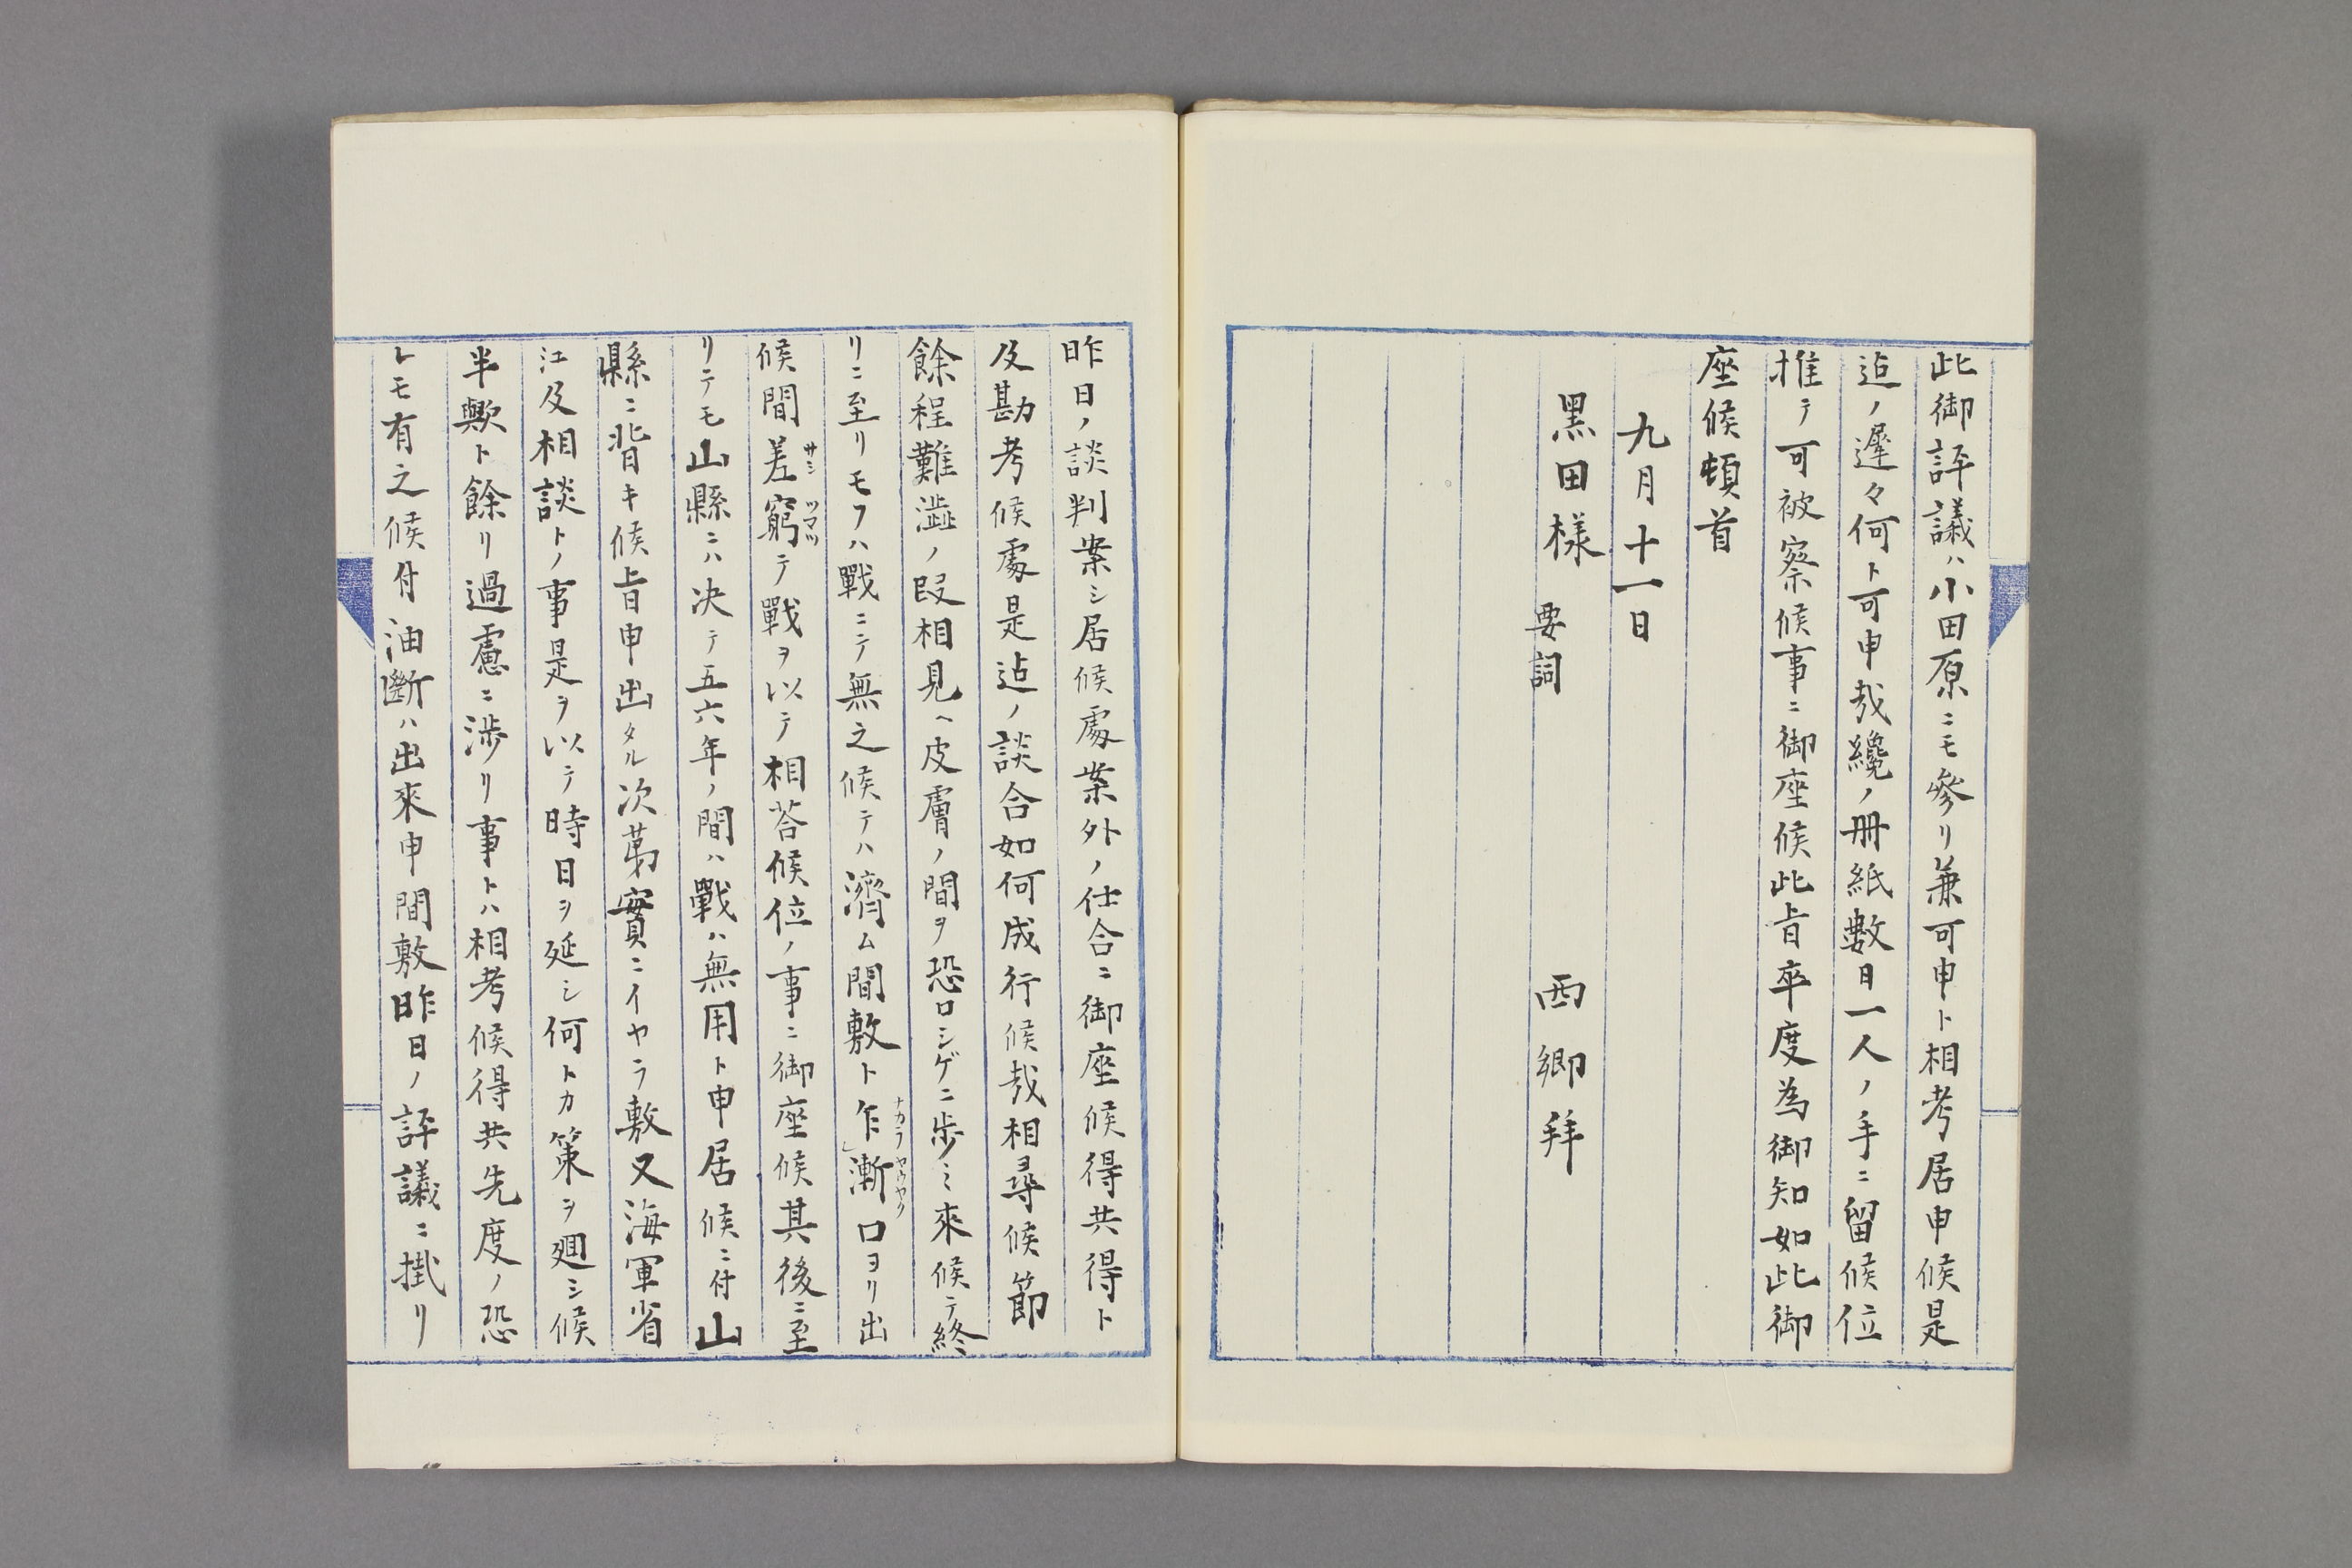 此御評議ハ小田原ニモ參リ兼可申ト相考居申候是
迠ノ遲々何ト可申哉纔ノ冊紙數日一人ノ手ニ留候位
推テ可被察候事ニ御座候此旨卒度為御知如此御
座候頓首
九月十一日
西郷拜
黒田様
要詞
昨日ノ談判案シ居候處案外ノ仕合ニ御座候得共得ト
及勘考候處是迠ノ談合如何成行候哉相尋候節
餘程難澁ノ段相見ヘ皮膚ノ間ヲ恐ロシゲニ歩ミ來候テ終
リニ至リモフハ戰ニテ無之候テハ濟ム間敷ト乍漸口ヨリ出
ナカラヤウヤク
候間差窮テ戰ヲ以テ相荅候位ノ事ニ御座候其後ニ至
サシツマツ
リテモ山縣ニハ决テ五六年ノ間ハ戰ハ無用ト申居候ニ付山
縣ニ背キ候旨申出タル次苐實ニイヤラ敷又海軍省
江及相談トノ事是ヲ以テ時日ヲ延シ何トカ策ヲ廻シ候
半歟ト餘リ過慮ニ渉リ事トハ相考候得共先度ノ恐
レモ有之候付油斷ハ出來申間敷昨日ノ評議ニ掛リ